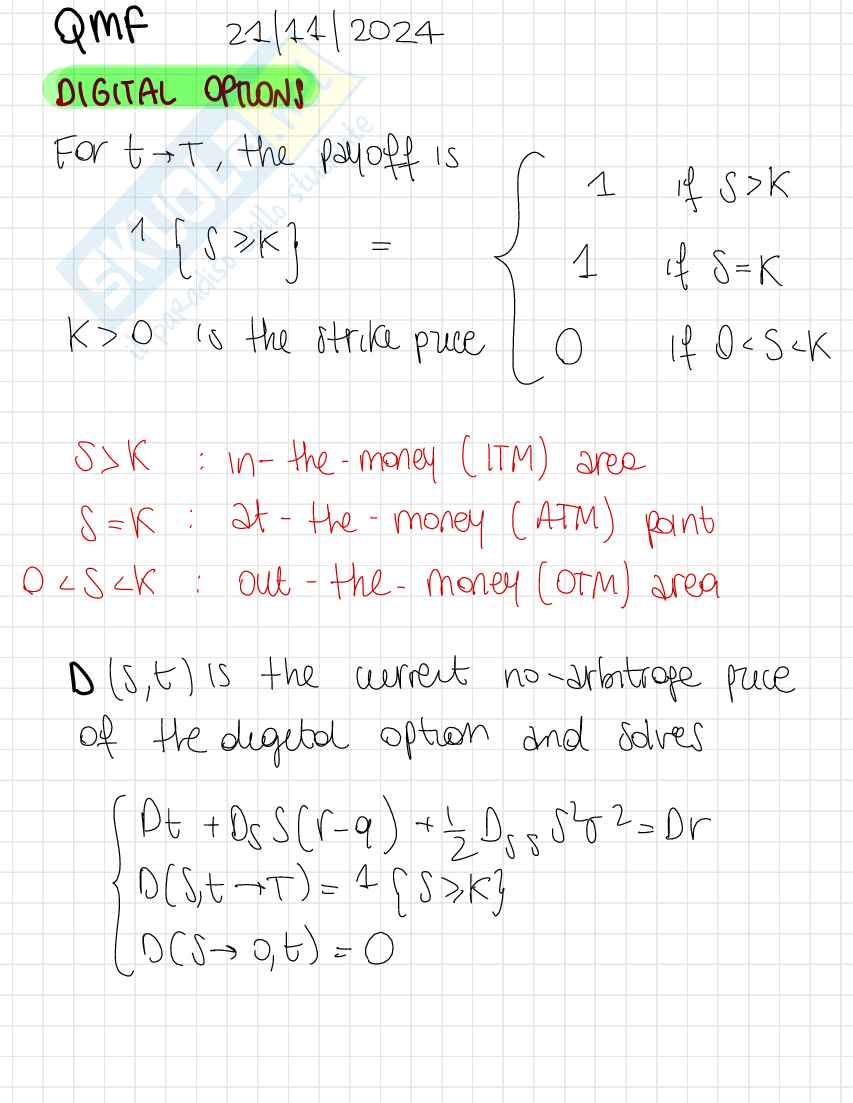 QMF 21/11/2024
DIGITAL OPTIONS
For t→T, the payoff is
1 {S≥K} = { 1 if S>K
1 if S=K
K>0 is the strike price 0 if 0<S<K
S>K : in-the-money (ITM) area
S=K : at-the-money (ATM) point
0<S<K : out-the-money (OTM) area
D(S,t) is the current no-arbitrage price
of the digital option and solves
{ Dt + D_S S(r-q) + 1/2 D_SS S²σ² = Dr
D(S,t→T) = 1{S≥K}
D(S→0,t) = 0
SKUOLA.net
il paradiso dello studente